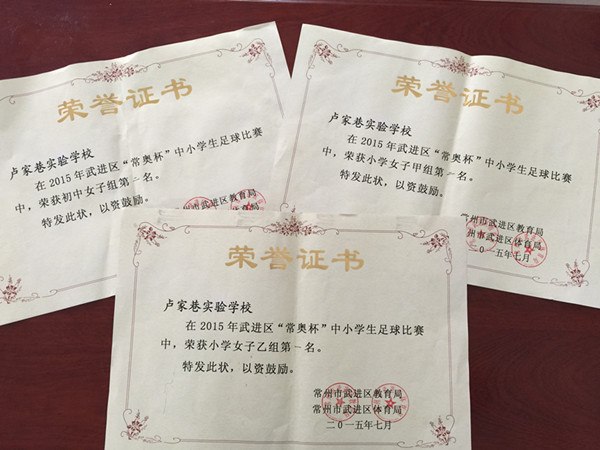 荣誉证书
卢家巷实验学校
在2015年武进区“常奥杯”中小学生足球比赛
中，荣获初中女子组第一名。
特发此状，以资鼓励。
常州市武进区教育局
荣誉证书
卢家巷实验学校
在2015年武进区“常奥杯”中小学生足球比赛
中，荣获小学女子甲组第一名。
特发此状，以资鼓励。
常州市武进区教育局
州市武进区体育局
二〇一五年七月
荣誉证书
卢家巷实验学校
在2015年武进区“常奥杯”中小学生足球比赛
中，荣获小学女子乙组第一名。
特发此状，以资鼓励。
常州市武进区教育局
常州市武进区体育局
二〇一五年七月